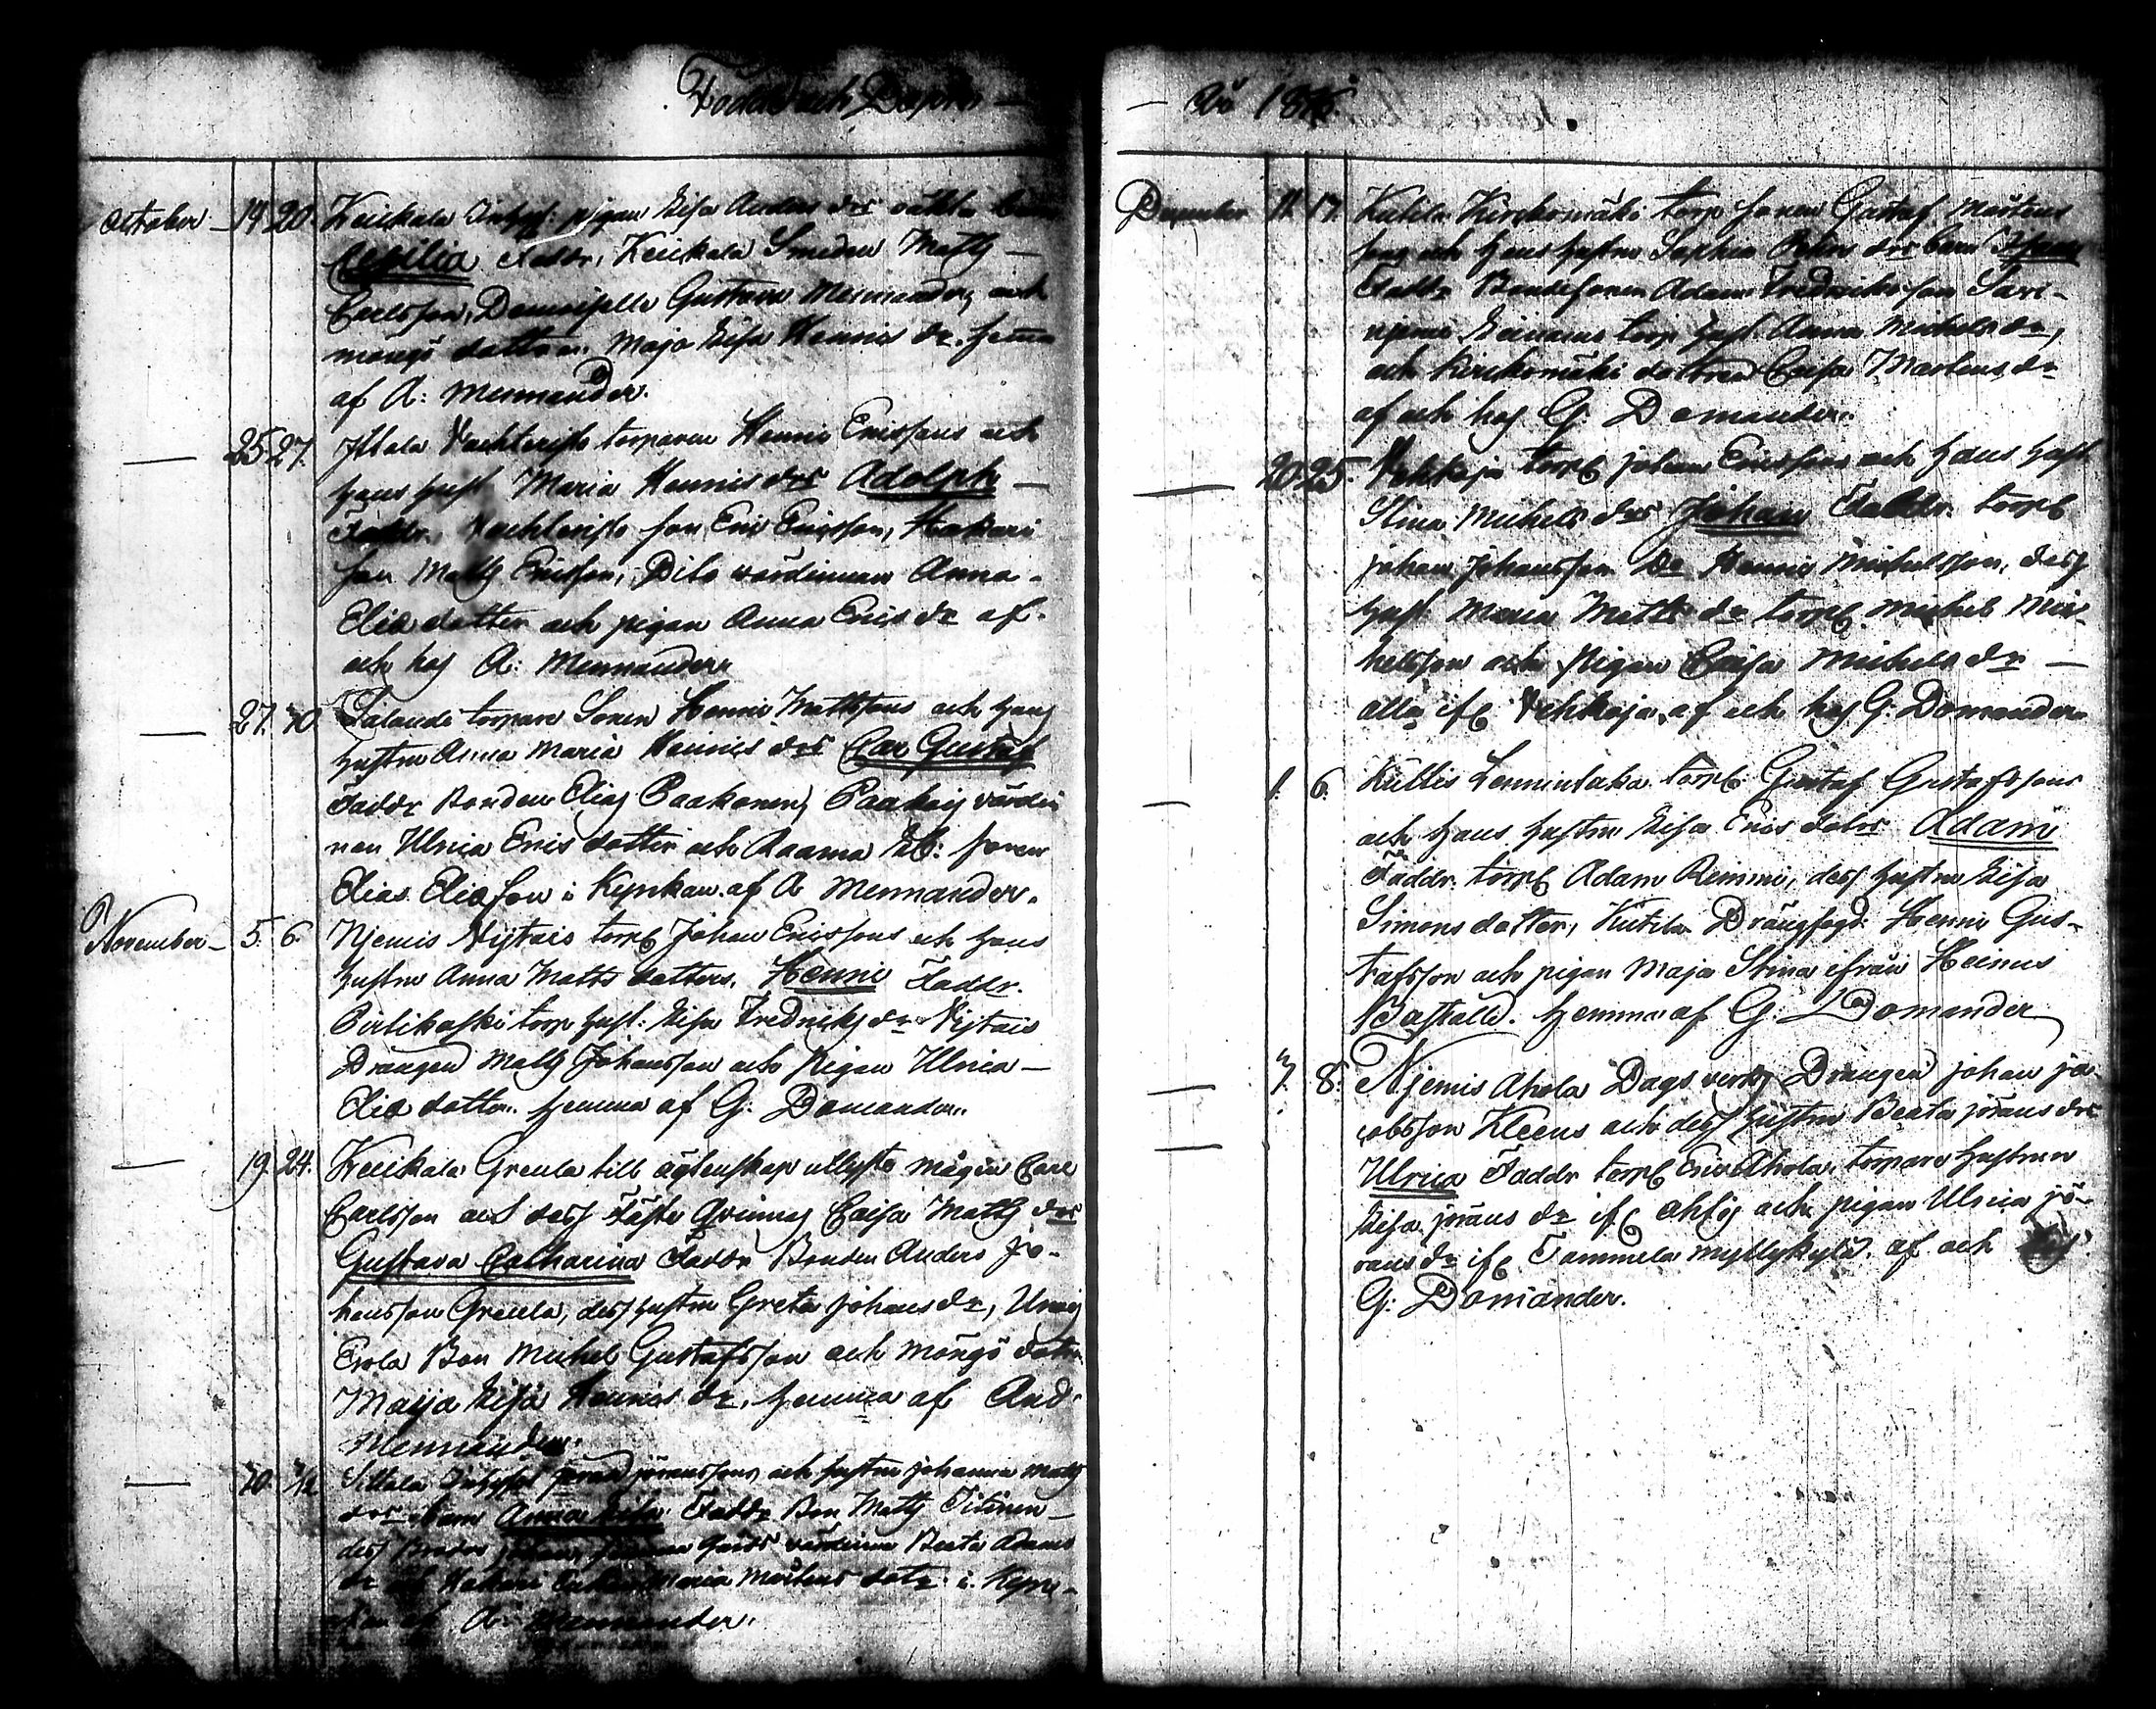 Födde och Döpte —
October — 19. 20. Keickala pigan Lisa Anders drs oäkta barn
Cecilia Faddr, Keickala Smeden Matts —
Carlsson, Demoiselle Gustava Mennander, och
möngö dotteren Maja Lisa Hennis dr. hemma
af A: Mennander.
— 25. 27. torparen Henric Ericssons och
hans hust Maria Hennis drs Adolph —
Faddr, son Eric Ericsson, Hakari
son Matts Ericsson, Dito wärdinnan Anna
Elia dotter och pigan Anna Erics dr af
och hos A: Mennander
— 27. 30. torpare Sonen Henric Mattssons och hans
hustru Anna Maria Hennics drs Carl Gustaf
Faddr Bonden Elias Paakonen, Paakois värdin
nan Ulrica Erics dotter och Raama sonen
Elias Eliasson i Kynkan af A Mennander.
November — 5. 6. Njemis Nijtais torp Johan Ericssons och hans
hustru Anna Matts dotters, Henric Faddr.
Pirtikoski torp hust: Lisa Fredriks dr Nijtais
Drängen Matts Johansson och Pigan Ulrica —
Elia dotter. hemma af G: Domander.
— 19. 24. Keickala Greula till ägtenskap utlyste mågen Carl
Carlsson och dess Fäste Qvinnas Caisa Matts drs
Gustava Catharina Faddr Bonden Anders Jo-
hansson Greula, dess hustru Greta Johans dr,
Erola Bon Michel Gustafsson och möngö dottr
Maija Lisa Hennics dr, hemma af And:
Mennander.
— 30. 1/12 Sittala Jöransson och hustru Johanna Matts
drs barn Anna Lisa Faddr Bon Matts Titinen —
dess Broder Johan, värdinnan Beata Adams
dr Hakari Maria Mårtens dotr i Kyrc-
kan af A: Mennander.
— År
December 11. 17. Kuhla Kirckomäki torp sonen Gustaf Mårtens
sons och hans hustru Sophia drs barn
Faddr Bondesonen Adam Fredriksson Sari-
torp hust Anna Michels dr,
och Kirckomäki dottren Caisa Mårtens dr
af och hos G: Domander.
— 20. 25. Vehkoja torp Johan Ericssons och hans hust
Stina Michels drs Johan Faddr. torp
Johan Johansson Do Hennic Michelsson, dess
hust Maria Matts dr torp. Michel Mic-
helsson och Pigan Caisa Michels dr —
alla if Vehkoja, af och hos G: Domander
— 1. 6. Kultis Lemmintaka torp Gustaf Gustafssons
och hans hustru Lisa Erics dotrs Adam
Faddr. torp Adam Remmi, dess hustru Lisa
Simons dotter, Kutila Drängfogd Henric Gus-
tafsson och pigan Maja Stina ifrån Heinus
Boställe. hemma af G: Domander
— 7. 8. Njemis Ahola Dagsverks Drängen Johan Ja-
cobsson Kleens och dess hustru Beata Jörans drs
— Ulrica Faddr torp Eric Ahola, torpare hustrun
Lisa Jörans dr if och pigan Ulrica Jö-
rans dr if Tammela Myllykylä. af och hos
G: Domander.